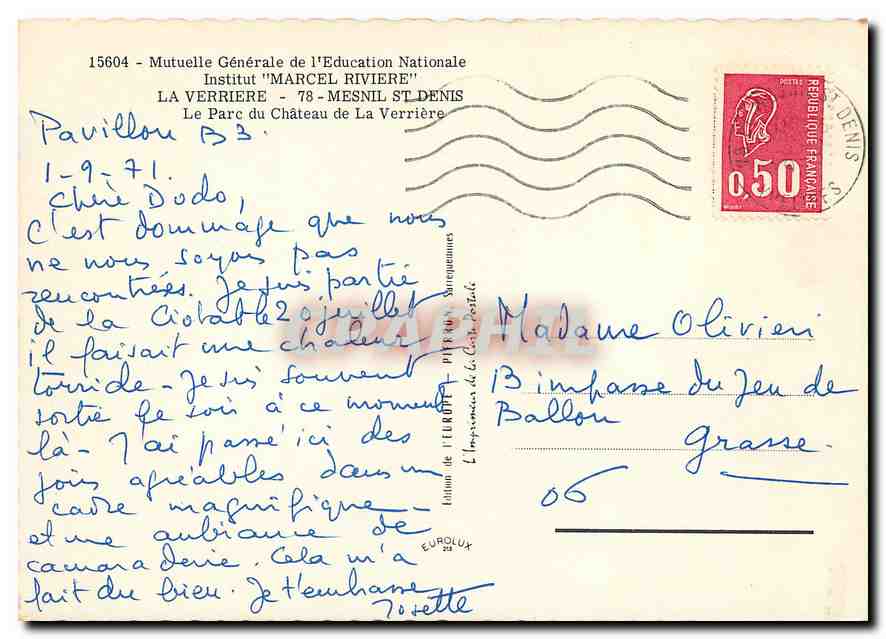 15604 - Mutuelle Générale de l'Education Nationale
Institut "MARCEL RIVIERE"
LA VERRIERE - 78 - MESNIL ST DENIS
Le Parc du Château de La Verrière
Pavillon B3.
1-9-71.
Chère Dodo,
C'est dommage que nous
ne nous soyons pas
rencontrées. Je suis partie
de la Ciotat le 20 juillet
il faisait une chaleur
torride - Je suis souvent
sortie le soir à ce moment
là - J'ai passé ici des
jours agréables dans un
cadre magnifique
et une ambiance de
camaraderie. Cela m'a
fait du bien. Je t'embrasse
Josette
Edition de l'EUROPE - PIERRON Sarreguemines
l'Imprimeur de la Carte Postale
EUROLUX
POSTES
REPUBLIQUE FRANÇAISE
0,50
ST DENIS
Madame Olivieri
B impasse du Jeu de
Ballon
Grasse.
06
GRAPHIL